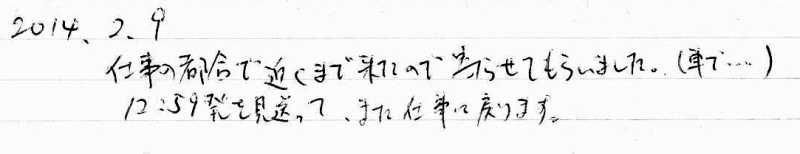 2014、2、9
仕事の都合で近くまで来たので寄らせてもらいました。(車で…)
12:59発を見送って、また仕事に戻ります。